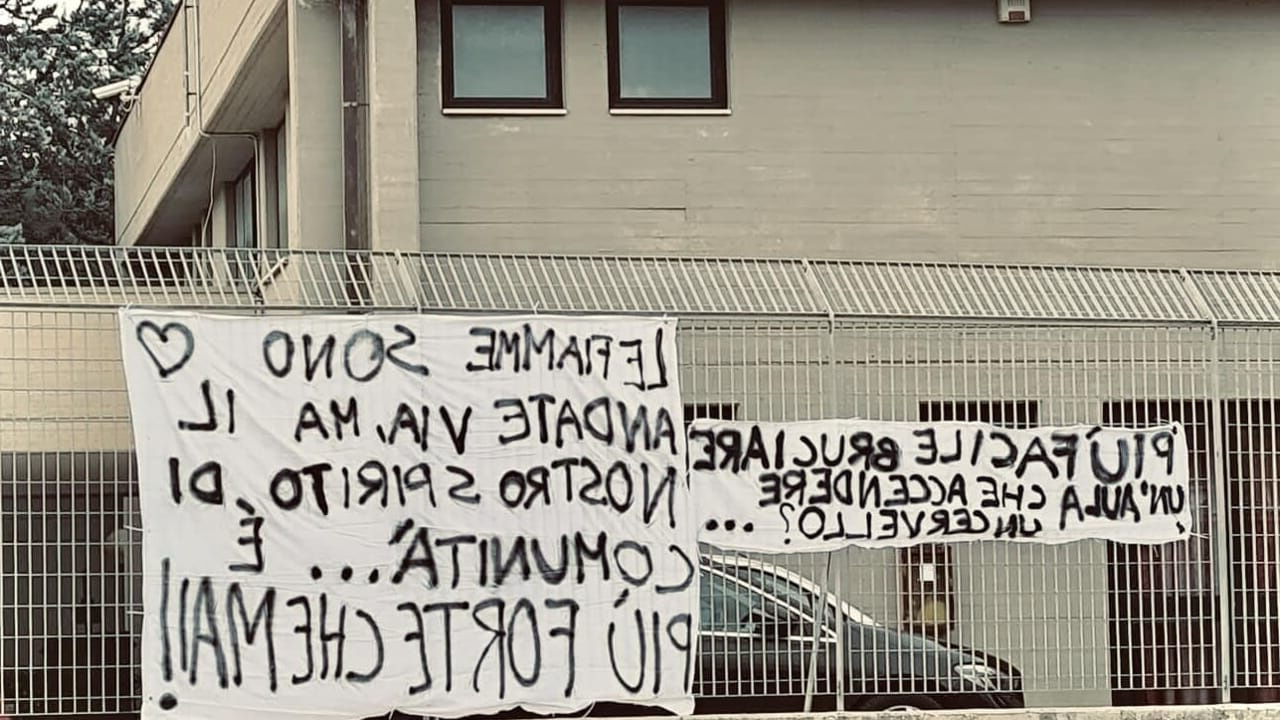 LE FIAMME SONO
ANDATE VIA, MA IL
NOSTRO SPIRITO, DI
COMUNITÀ... È
PIÚ FORTE CHE MAI!!
PIÚ FACILE BRUCIARE
UN'AULA CHE ACCENDERE
UN CERVELLO? ...